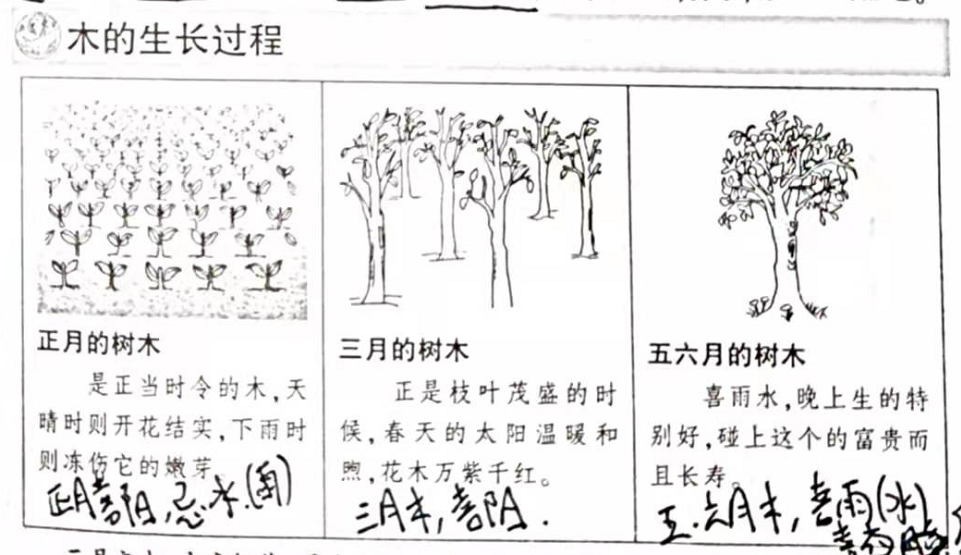 木的生长过程
正月的树木
是正当时令的木,天
晴时则开花结实,下雨时
则冻伤它的嫩芽。
正月喜阳,忌水.(雨)
三月的树木
正是枝叶茂盛的时
候,春天的太阳温暖和
煦,花木万紫千红。
三月木,喜阳.
五六月的树木
喜雨水,晚上生的特
别好,碰上这个的富贵而
且长寿。
五.六月木,喜雨(水)